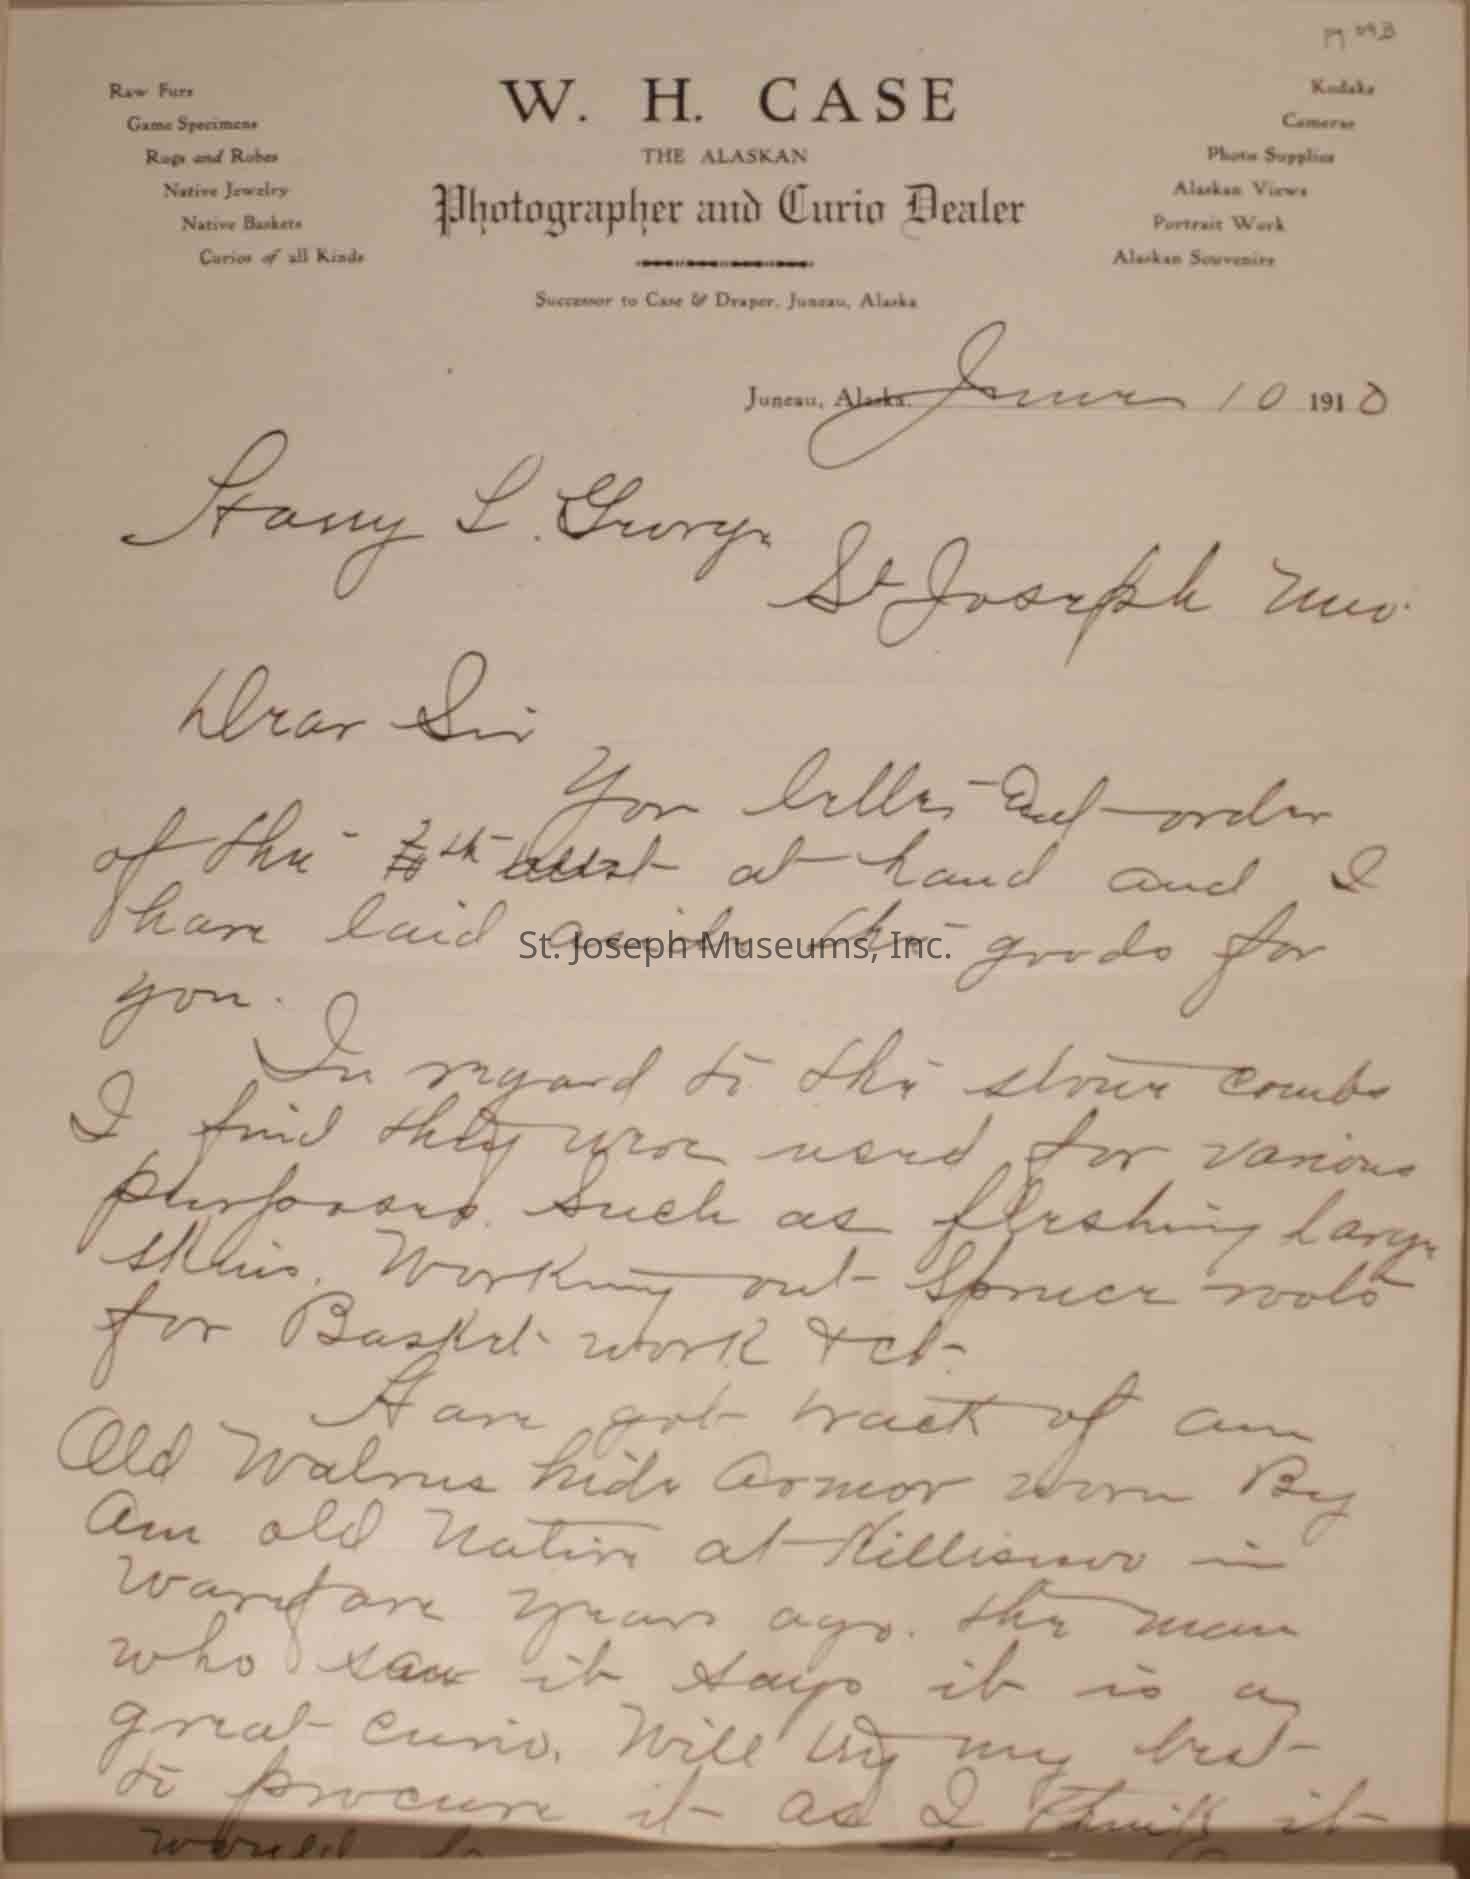 W. H. CASE
THE ALASKAN
Photographer and Curio Dealer
Successor to Case & Draper, Juneau, Alaska
Raw Furs
Game Specimens
Rugs and Robes
Native Jewelry
Native Baskets
Curios of all Kinds
Kodaks
Cameras
Photo Supplies
Alaskan Views
Portrait Work
Alaskan Souvenirs
Juneau, Alaska. June 10 1910
Harry L. George
St Joseph Mo.
Dear Sir
Your letter and order
of the th at hand and I
have laid aside the goods for
you.
In regard to the stone combs
I find they were used for various
purposes. Such as fleshing large
skins. Working out Spruce roots
for Basket work & ct.
Have got track of an
Old Walrus hide Armor worn By
an old Native at Killisnoo in
warfare years ago. the man
who saw it says it is a
great curio. Will try my best
to procure it as I think it
would
St. Joseph Museums, Inc.